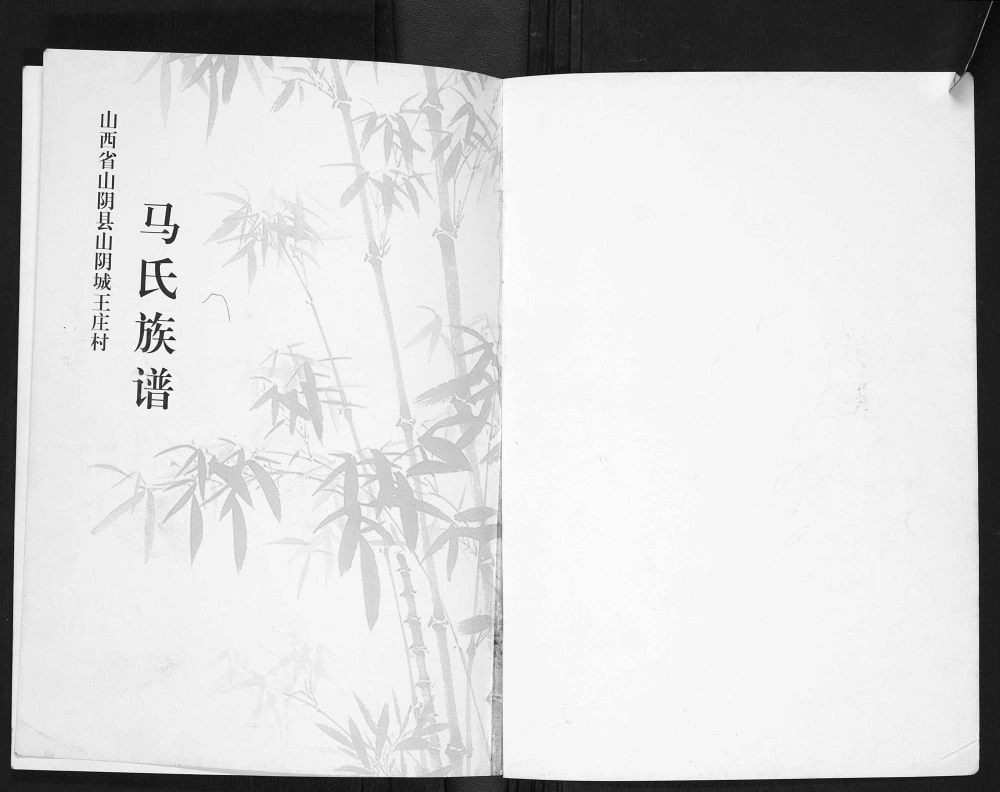 山西省山阴县山阴城王庄村
马氏族谱